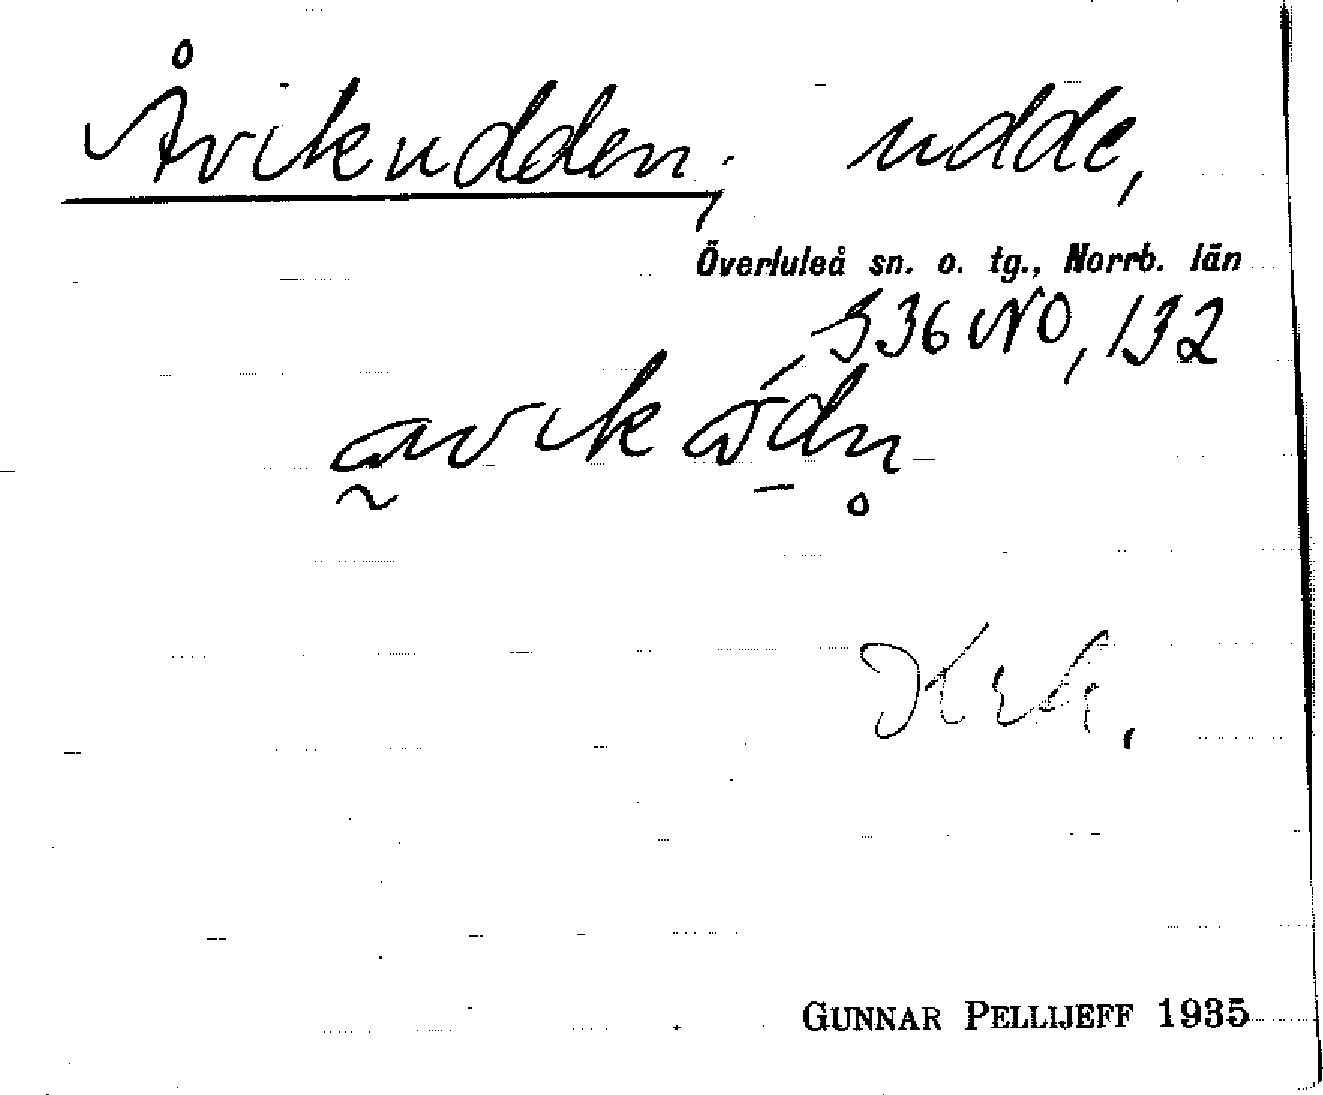 Åvikudden, udde,
Överluleå sn. o. tg., Norrb. län
S36NO, 132
GUNNAR PELLIJEFF 1935